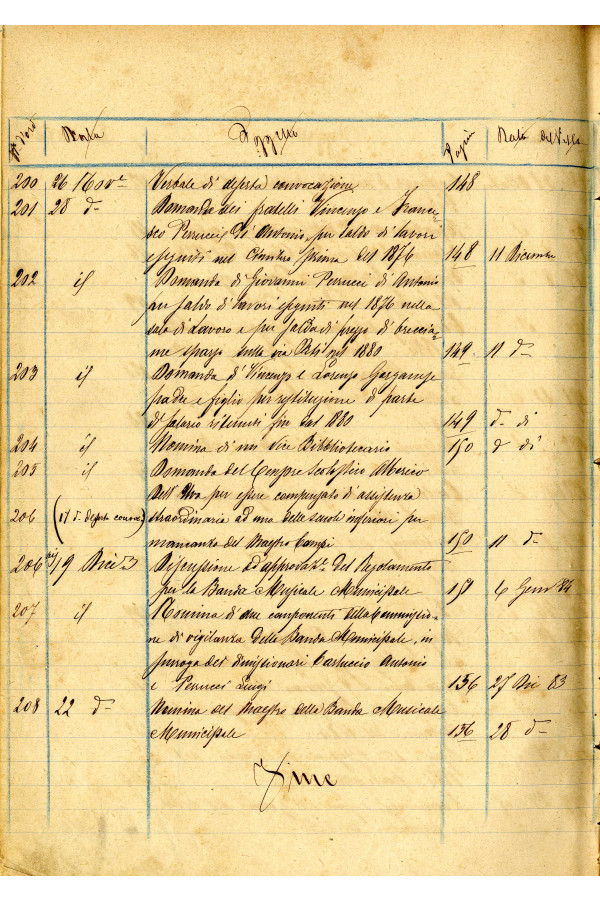 N. d'ord Data Oggetto Pagina Data del Visto
200 26 9bre Verbale di deserta convocazione 148
201 28 d° Domanda dei fratelli Vincenzo e France-
sco Perrucci di Antonio, per saldo di lavori
eseguiti nel Cimitero prima del 1876 148 11 Dicembre
202 id Domanda di Giovanni Perrucci di Antonio
per saldo di lavori eseguiti nel 1876 nella
sala di lavoro e per saldo di prezzo di breccia-
me sparso sulla via nel 1880 149 11 d°
203 id Domanda di Vincenzo e Lorenzo
padre e figlio per restituzione di parte
di salario ritenuti fin dal 1880 149 d° di
204 id Nomina di un Vice Bibliotecario 150 d di
205 id Domanda del Scolastico Alberico
Dell' per essere compensato di assistenza
206 (17 d° deserta convoc.e) straordinaria ad una delle scuole inferiori per
mancanza del Maestro Campi 150 11 d°
206 bis 19 Dice 3 Discussione ed approvaz.e del Regolamento
per la Banda Musicale Municipale 151 6 Genn 84
207 id Nomina di due componenti della Commissio-
ne di vigilanza della Banda Municipale, in
surroga dei dimissionari Carluccio Antonio
e Perrucci Luigi 156 27 Dic 83
208 22 d° Nomina del Maestro della Banda Musicale
Municipale 156 28 d°
Fine